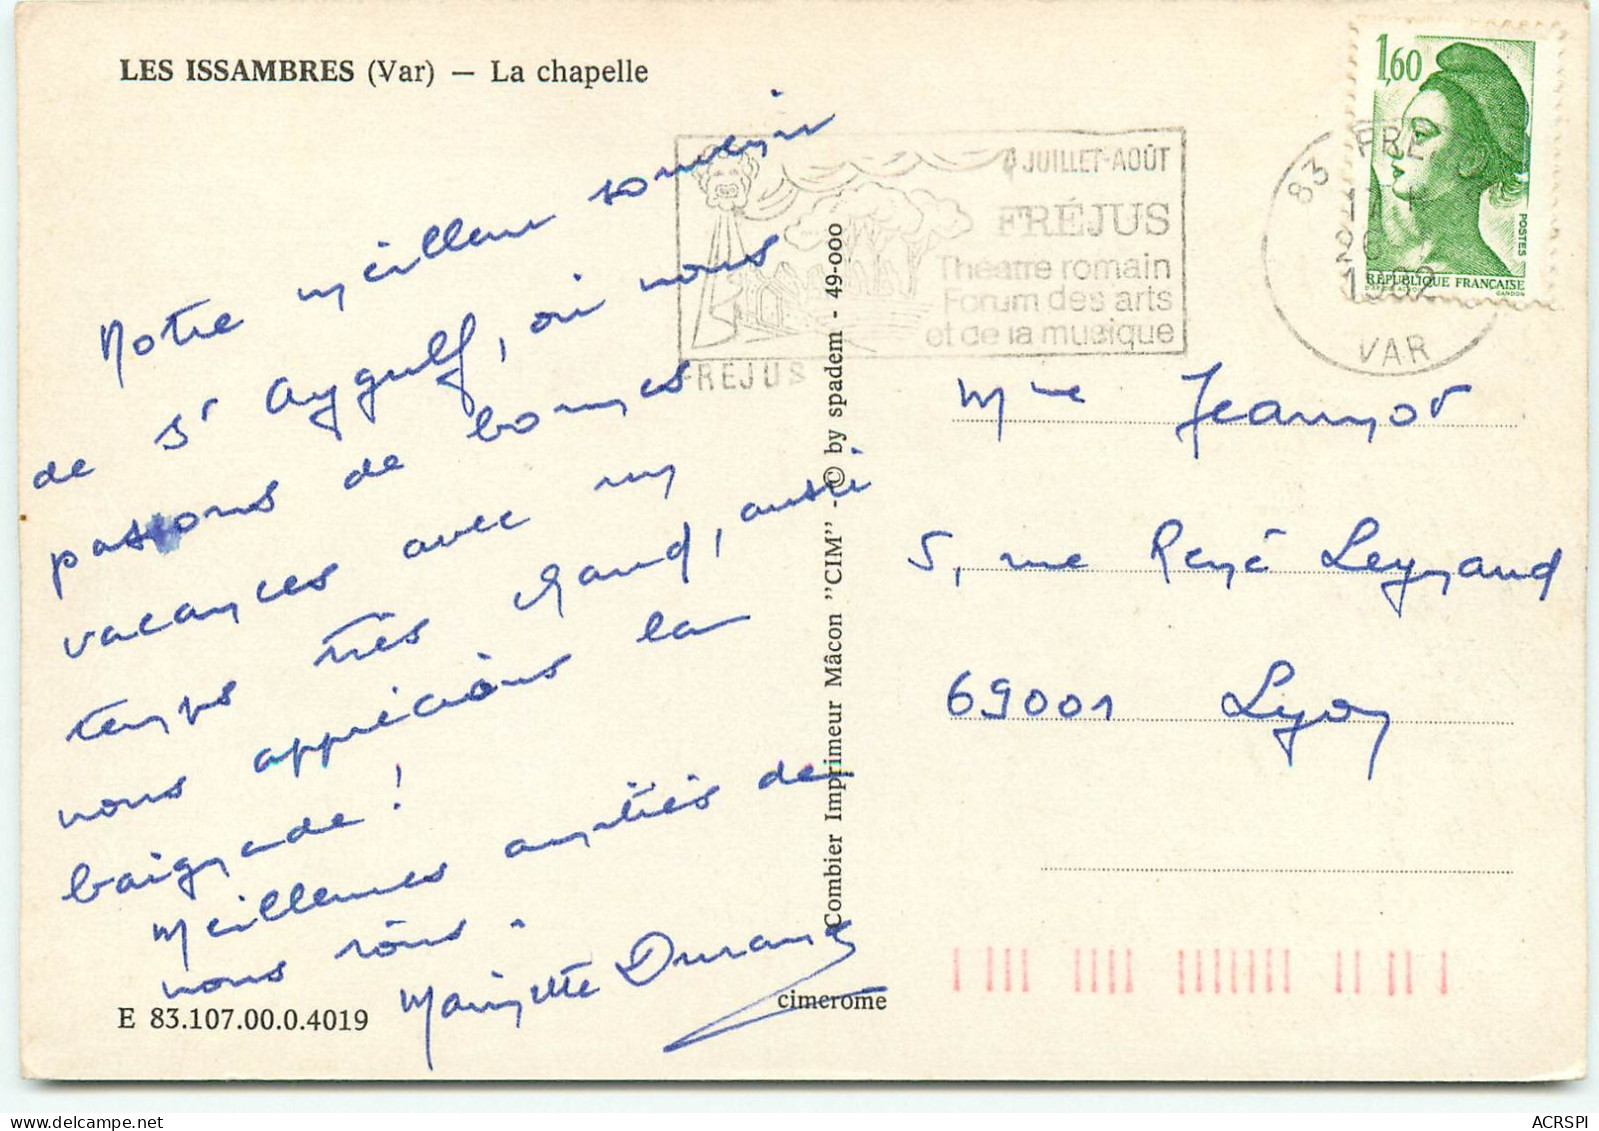 LES ISSAMBRES (Var) — La chapelle
Notre meilleur souvenir
de St Aygulf, où nous
passons de bonnes
vacances avec un
temps très chaud, aussi
nous apprécions la
baignade !
Meilleures amitiés de
nous tous.
Durand
E 83.107.00.0.4019
cimerome
Combier Imprimeur Mâcon "CIM" - © by spadem - 49-000
JUILLET-AOÛT
FRÉJUS
Théatre romain
Forum des arts
et de la musique
FREJUS
83 FRE
VAR
1,60
POSTES
RÉPUBLIQUE FRANÇAISE
GANDON
Mme Jeannot
5, rue René Leynaud
69001 Lyon
ACRSPI